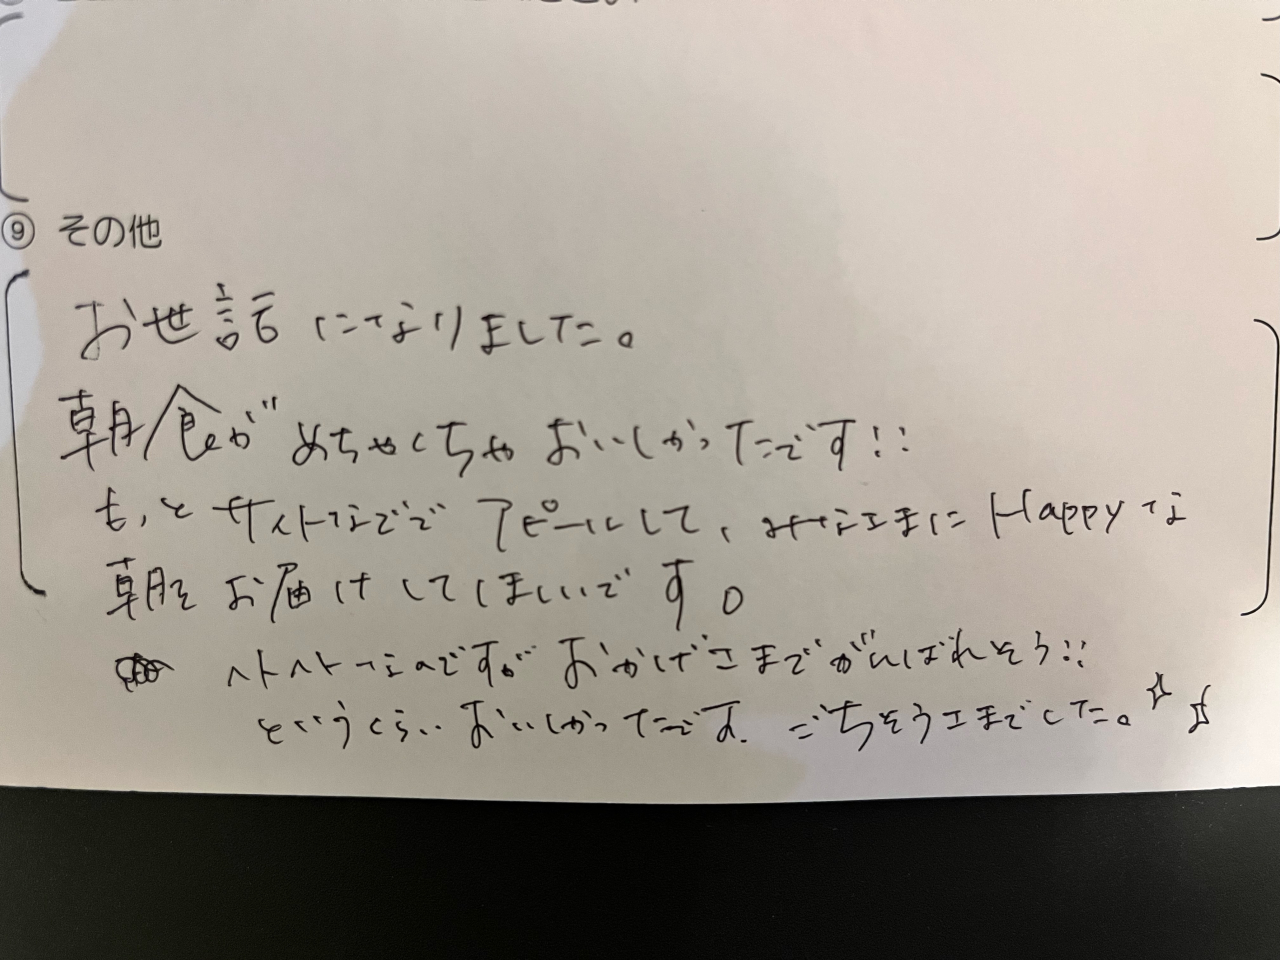 ⑨ その他
お世話になりました。
朝食がめちゃくちゃおいしかったです!!
もっとサイトなどで アピールして、みなさまに Happy な
朝をお届けしてほしいです。
ヘトヘトなのですが おかげさまでがんばれそう!!
というくらい おいしかったです. ごちそうさまでした。